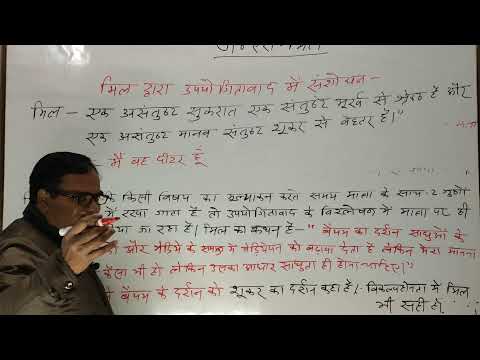 मिल द्वारा उपयोगितावाद में संशोधन -
मिल - एक असंतुष्ट सुकरात एक संतुष्ट मूर्ख से श्रेष्ठ है और
एक असंतुष्ट मानव संतुष्ट शूकर से बेहतर है।"
मैं वह पीटर हूँ
किसी विषय का मूल्यांकन करते समय मात्रा के साथ-2 गुणों
में रखा जाता है तो उपयोगितावाद के विश्लेषण में मात्रा पर ही
जा रहा है। मिल का कथन है - "बेंथम का दर्शन साधुओं के
और भेड़िये के भेड़ियेपन को बढ़ावा देता है लेकिन मेरा मानना
भी हो लेकिन उसका आधार साधुता ही होना चाहिए।"
बेंथम के दर्शन को शूकर का दर्शन कहा है। विकल्पहीनता में मिल
भी सही हो